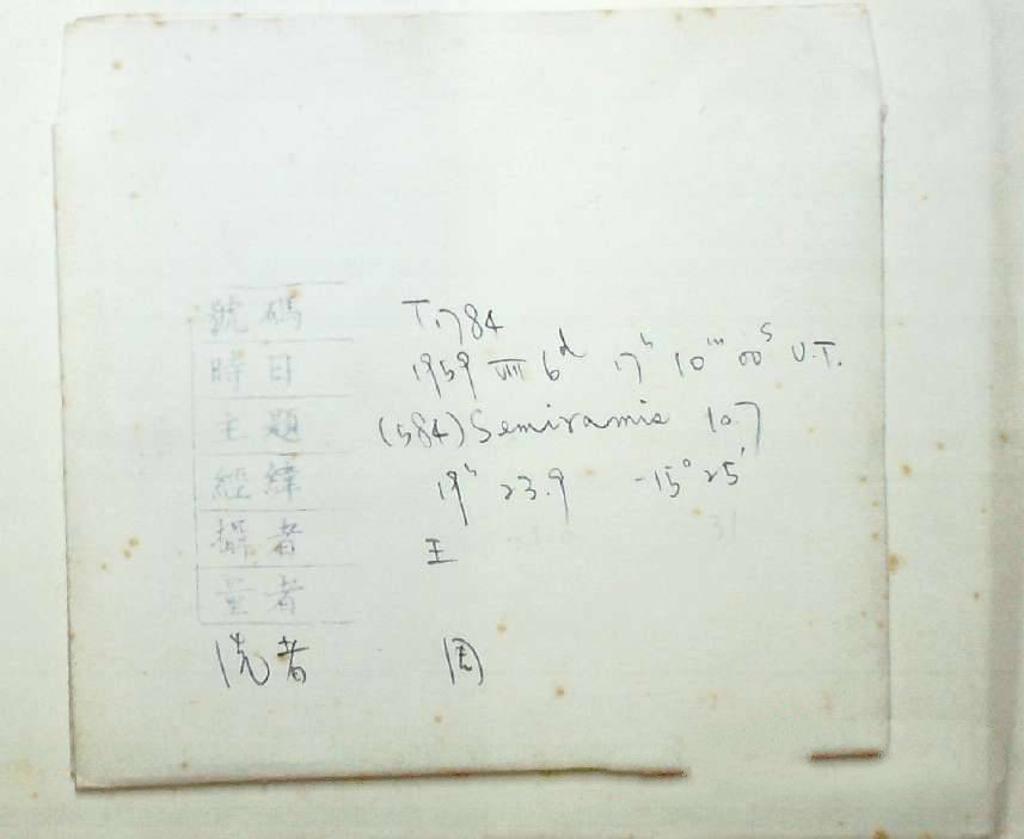 號碼 T.784
時日 1959 VIII 6d 17h 10m 00s U.T.
主題 (584) Semiramis 10.7
經緯 19h 23.9 -15° 25'
攝者 王
量者
洗者 周